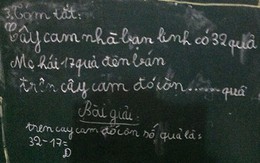 3, Tóm tắt:
Cây cam nhà bạn linh có 32 quả
Mẹ hái 17 quả đem bán
trên cây cam đó còn ...... quả
Bài giải
trên cây cam đó còn số quả là:
32-17=